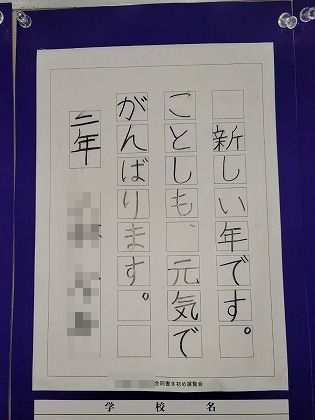 新しい年です。
ことしも、元気で
がんばります。
二年
合同書き初め展覧会
学校名